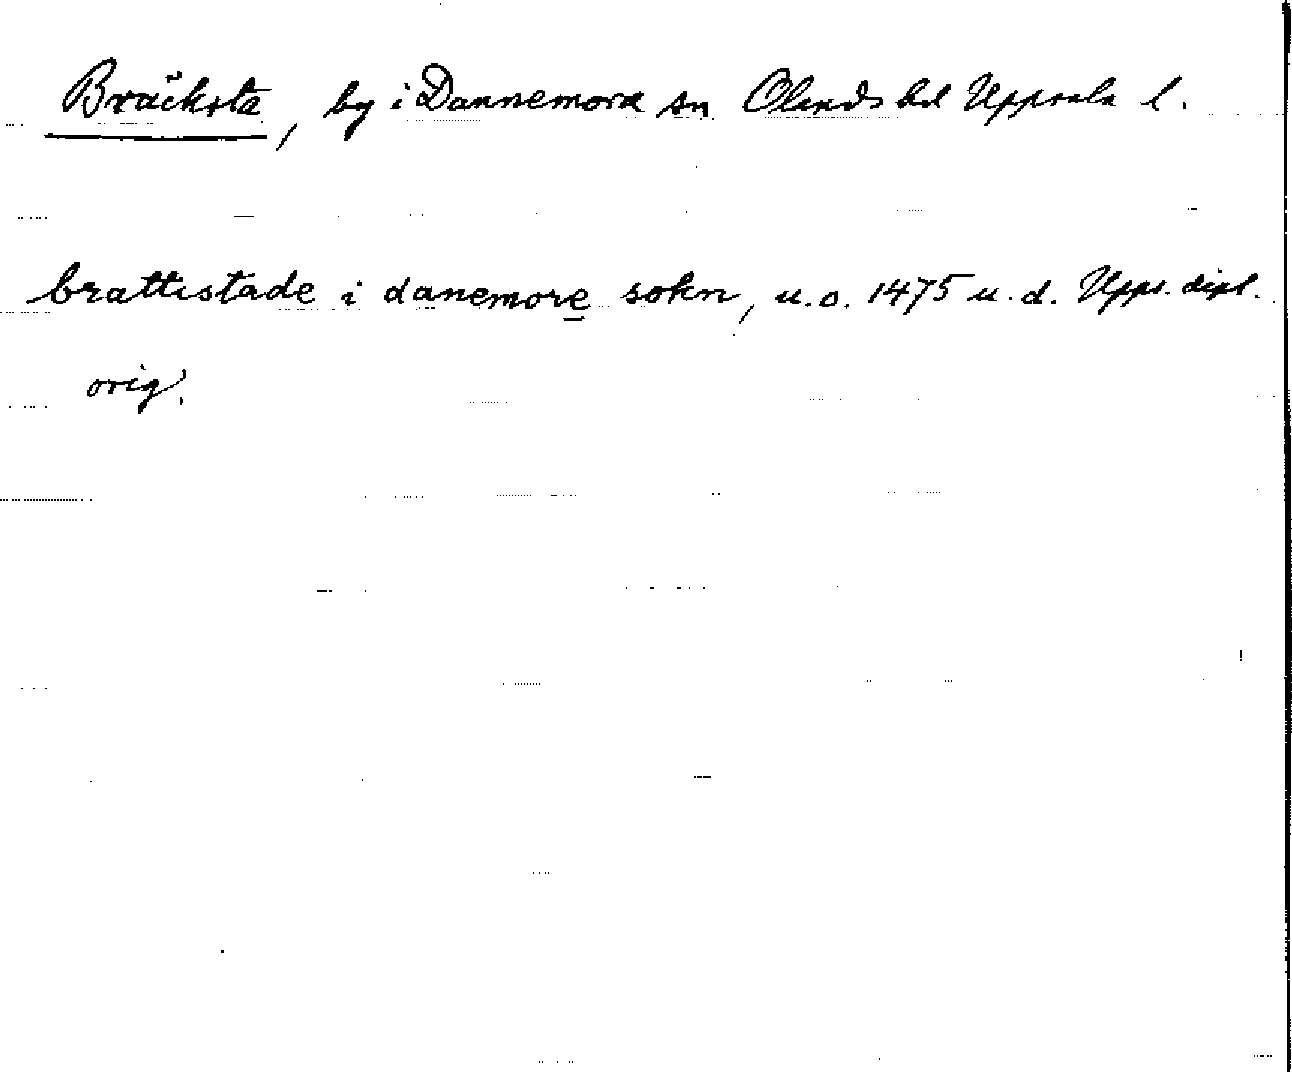 Bräcksta, by i Dannemora sn Olands hd Uppsala l.
brattestade i danemore sokn, u.o. 1475 u.d. Upps. dipl.
orig.